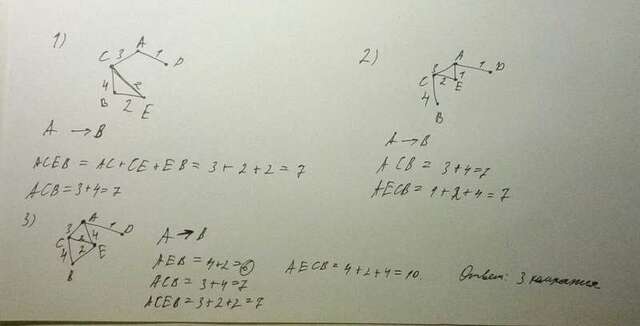 1)
A
C 3 1 D
4 2
B 2 E
A → B
ACEB = AC+CE+EB = 3+2+2=7
ACB=3+4=7
2)
A
C 3 1 1 D
2 E
4
B
A → B
ACB = 3+4=7
AECB=1+2+4=7
3)
A
3 1 D
C 2 4
4 2 E
B
A → B
AEB = 4+2=6
ACB = 3+4=7
ACEB=3+2+2=7
AECB=4+2+4=10.
Ответ: 3